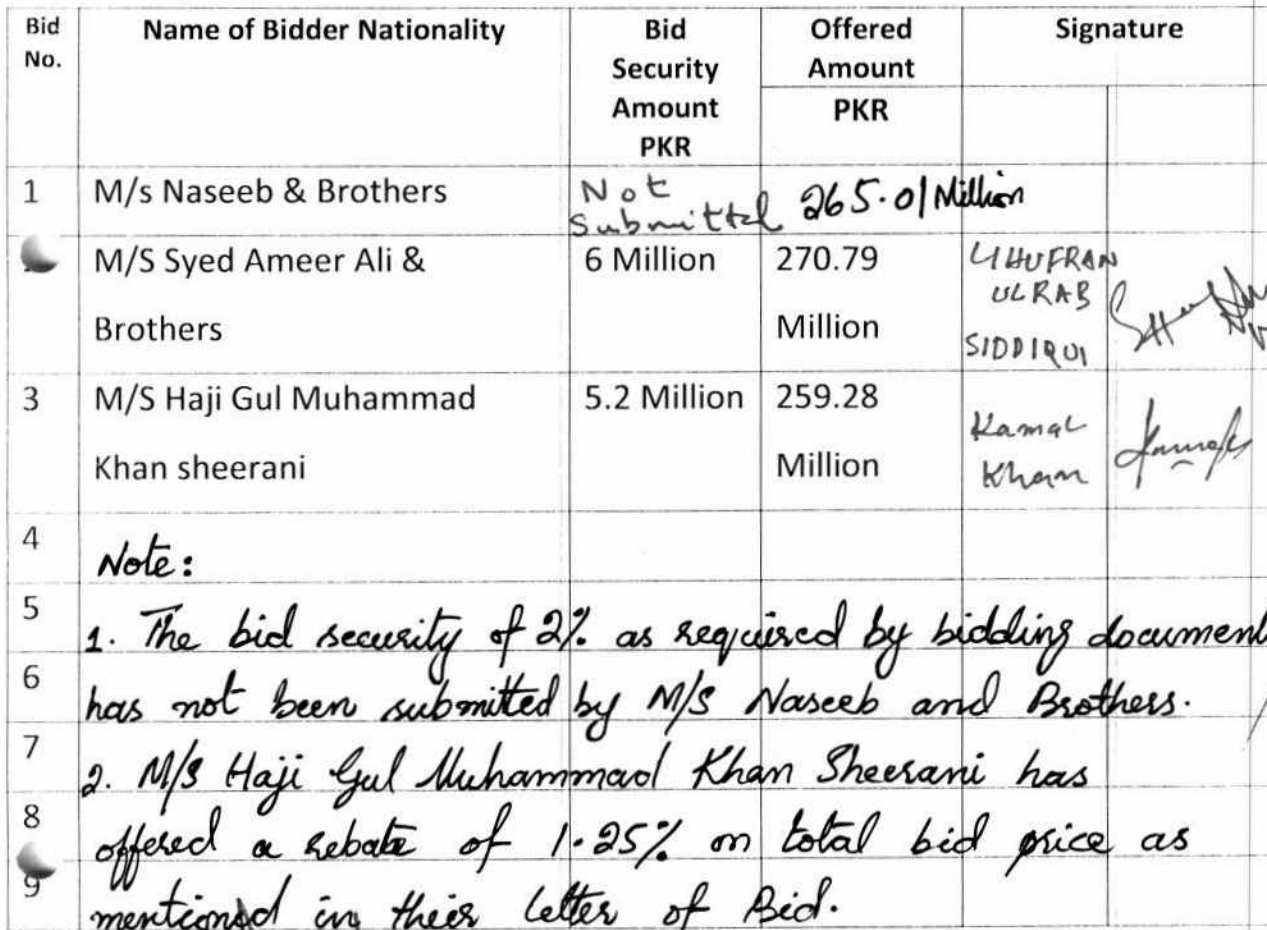 Bid No. Name of Bidder Nationality Bid Security Amount PKR Offered Amount PKR Signature
1 M/s Naseeb & Brothers Not Submitted 265.01 Million
M/S Syed Ameer Ali & 6 Million 270.79 GHUFRAN
ULRAB
Brothers Million SIDDIQUI
3 M/S Haji Gul Muhammad 5.2 Million 259.28 Kamal
Khan sheerani Million Khan
4 Note:
5 1. The bid security of 2% as required by bidding document
6 has not been submitted by M/S Naseeb and Brothers.
7 2. M/S Haji Gul Muhammad Khan Sheerani has
8 offered a rebate of 1.25% on total bid price as
9 mentioned in their letter of Bid.